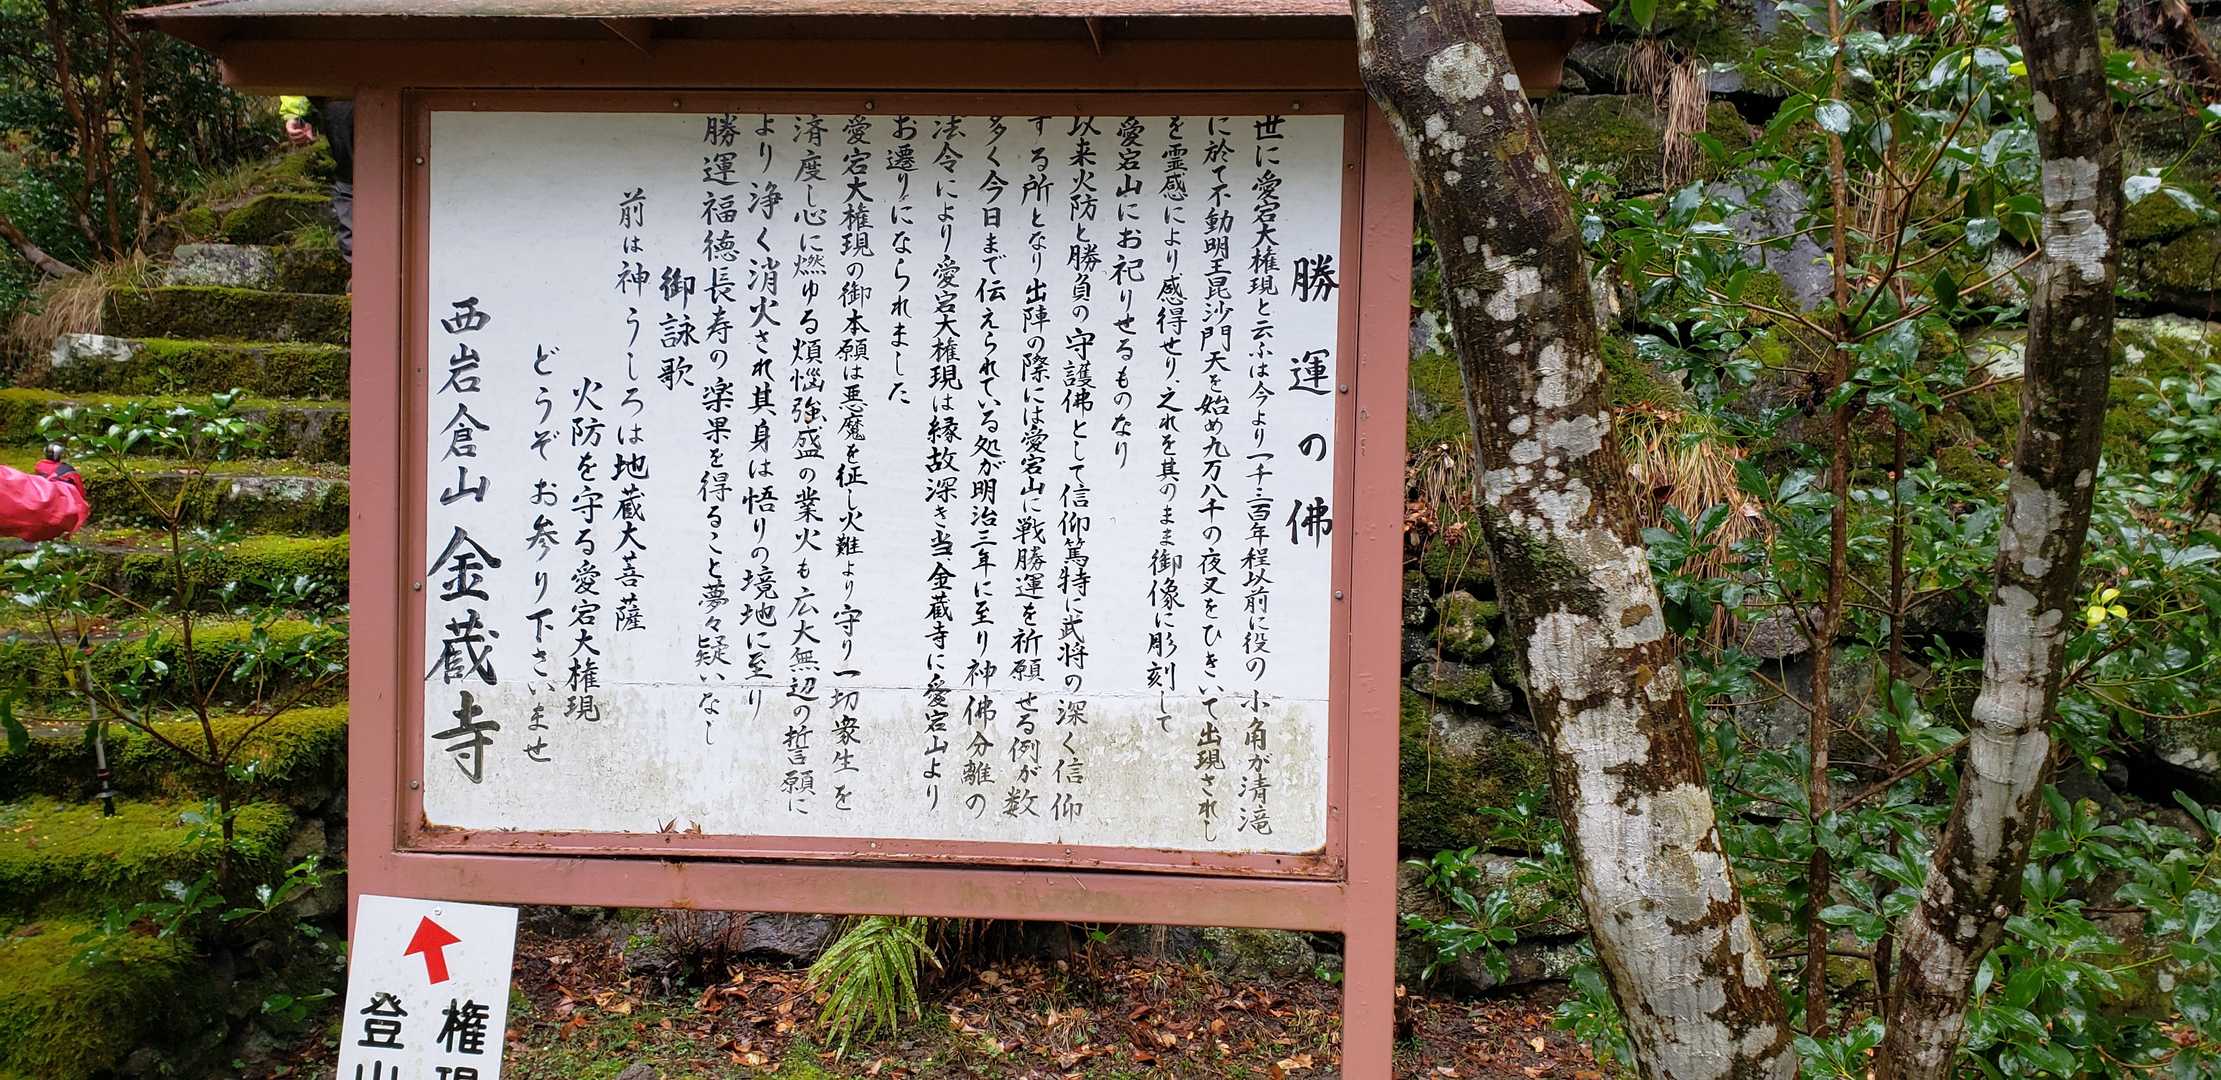 勝運の佛
世に愛宕大権現と云ふは今より一千三百年程以前に役の小角が清滝
に於て不動明王毘沙門天を始め九万八千の夜叉をひきいて出現されし
を霊感により感得せり、之れを其のまま御像に彫刻して
愛宕山にお祀りせるものなり
以来火防と勝負の守護佛として信仰篤特に武将の深く信仰
する所となり出陣の際には愛宕山に戦勝運を祈願せる例が数
多く今日まで伝えられている処が明治三年に至り神佛分離の
法令により愛宕大権現は縁故深き当金蔵寺に愛宕山より
お遷りになられました
愛宕大権現の御本願は悪魔を征し火難より守り一切衆生を
済度し心に燃ゆる煩悩強盛の業火も広大無辺の誓願に
より浄く消火され其身は悟りの境地に至り
勝運福徳長寿の楽果を得ること夢々疑いなし
御詠歌
前は神うしろは地蔵大菩薩
火防を守る愛宕大権現
どうぞお参り下さいませ
西岩倉山金蔵寺
権現
登山